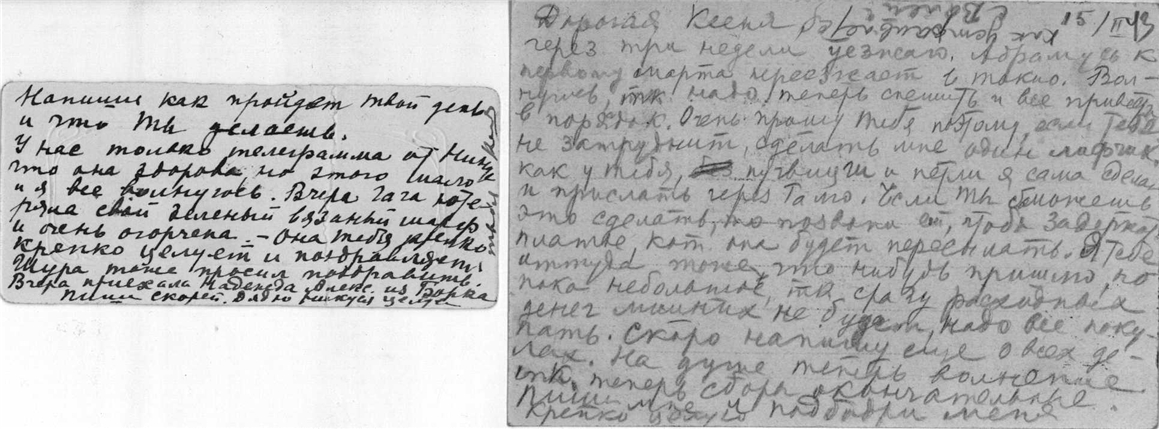 Напиши как пройдет твой день
и что ты делаешь.
У нас только телеграмма от Нины
что она здорова, но этого мало
и я все волнуюсь. Вчера Гага поте-
ряла свой зеленый вязаный шарф
и очень огорчена. – Она тебя крепко
крепко целует и поздравляет.
Шура тоже просил поздравить.
Вчера приехала Надежда Алекс. из
Пиши скорей. Дядю целую
Дорогая Ксеня 15/II
через три недели уезжаю. Абрамусь к
первому марта переезжает в Токио. Вол-
нуюсь, тк надо теперь спешить и все привести
в порядок. Очень прошу тебя поэтому, если тебя
не затруднит, сделать мне один лифчик,
как у тебя, пуговицы и петли я сама сделаю
и прислать через Тамо. Если ты сможешь
это сделать, то позвони ей, чтоб задержа
платье, кот. она будет пересылать. Я тебе
оттуда тоже что нибудь пришлю, но
пока небольшое, тк сразу расходных
денег лишних не будет, надо все поку-
пать. Скоро напишу еще о всех де-
лах. На душе теперь волнение
тк. теперь сборы окончательные.
Пиши мне и подбодри меня
Крепко целую